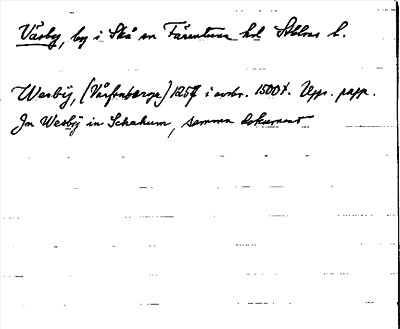 Väsby, by i Skå sn Färentuna hd Sthlms l.
Wesbij, (Vårfruberga) 1257 i avskr. 1500t. Upps. papp.
Jn Wesbÿ in Schahum, samma dokument